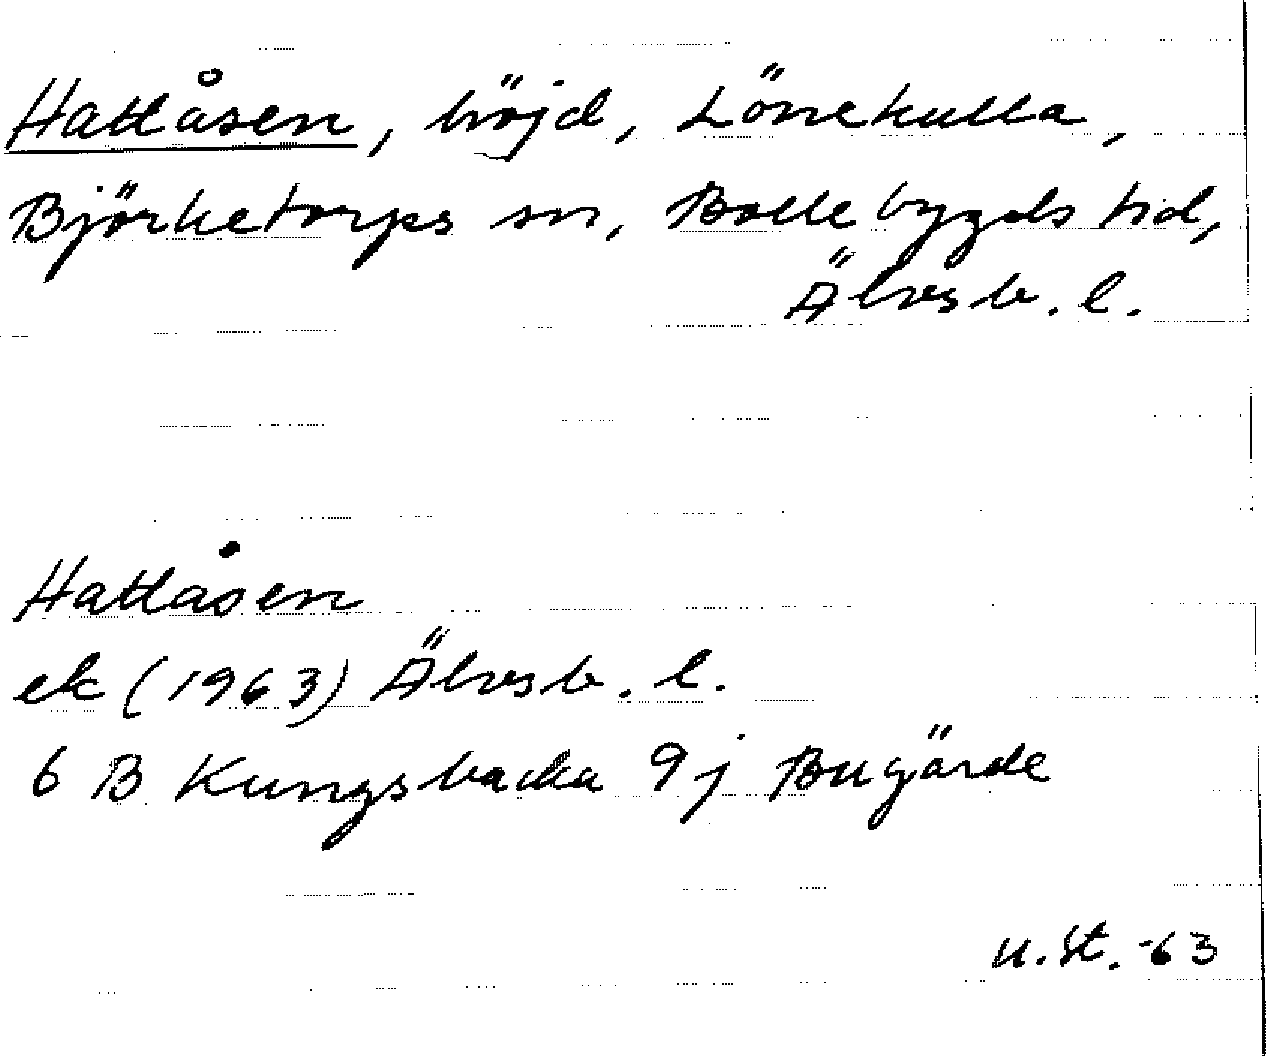 Hatlåsen, höjd, Lönekulla,
Björketorps sn, Bollebygds hd,
Älvsb. l.
Hatlåsen
ek (1963) Älvsb. l.
6 B Kungsbacka 9j Bugärde
u. St. -63